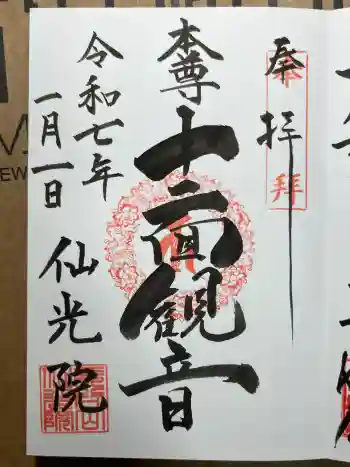 奉拝
奉拝
本尊
十一面観音
令和七年
一月一日
仙光院